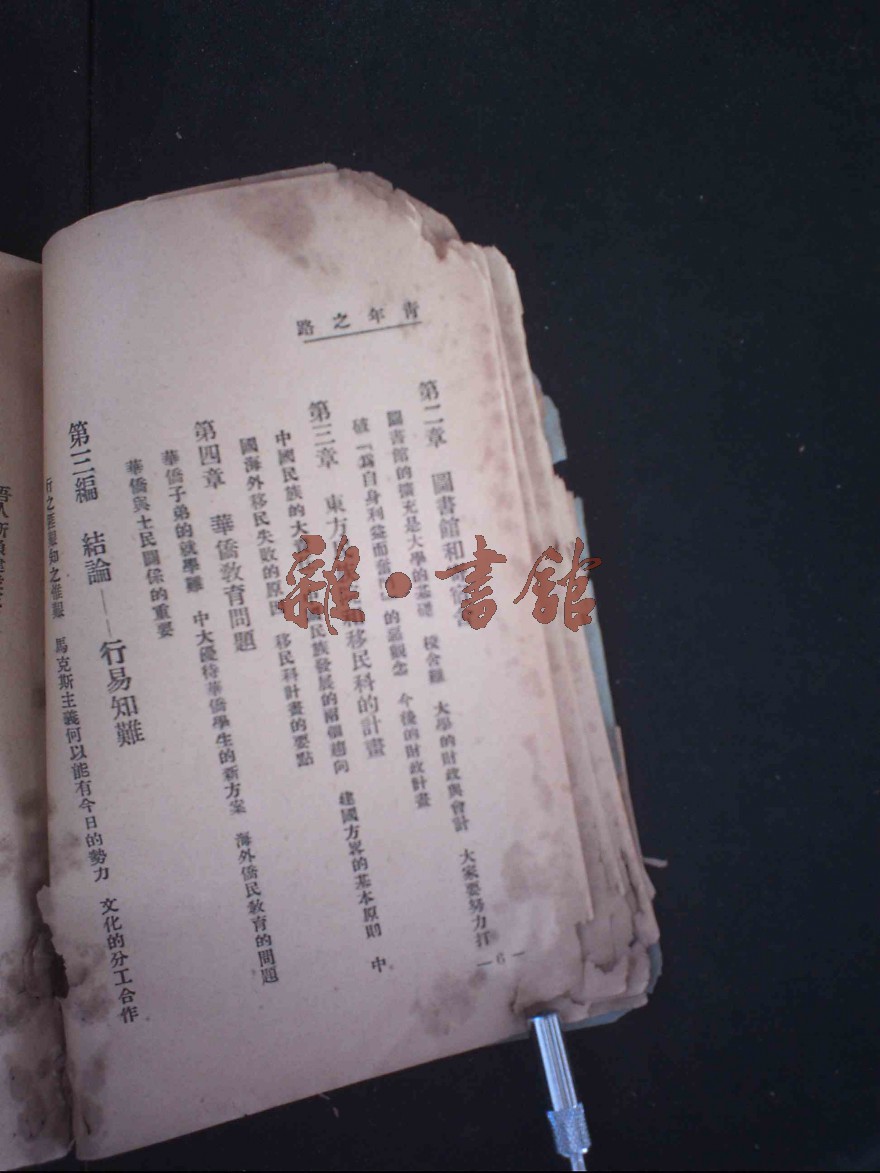 青年之路
第二章 圖書館和
圖書館的擴充是大學的基礎 校舍難 大學的財政與會計 大家要努力打
破「為自身利益而奮 的惡觀念 今後的財政計畫
第三章 東方 移民科的計畫
中國民族的大 國民族發展的兩個趨向 建國方畧的基本原則 中
國海外移民失敗的原因 移民科計畫的要點
第四章 華僑教育問題
華僑子弟的就學難 中大優待華僑學生的新方案 海外僑民教育的問題
華僑與土民關係的重要
第三編 結論——行易知難
行之匪艱知之惟艱 馬克斯主義何以能有今日的勢力 文化的分工合作
—6—
雜·書館